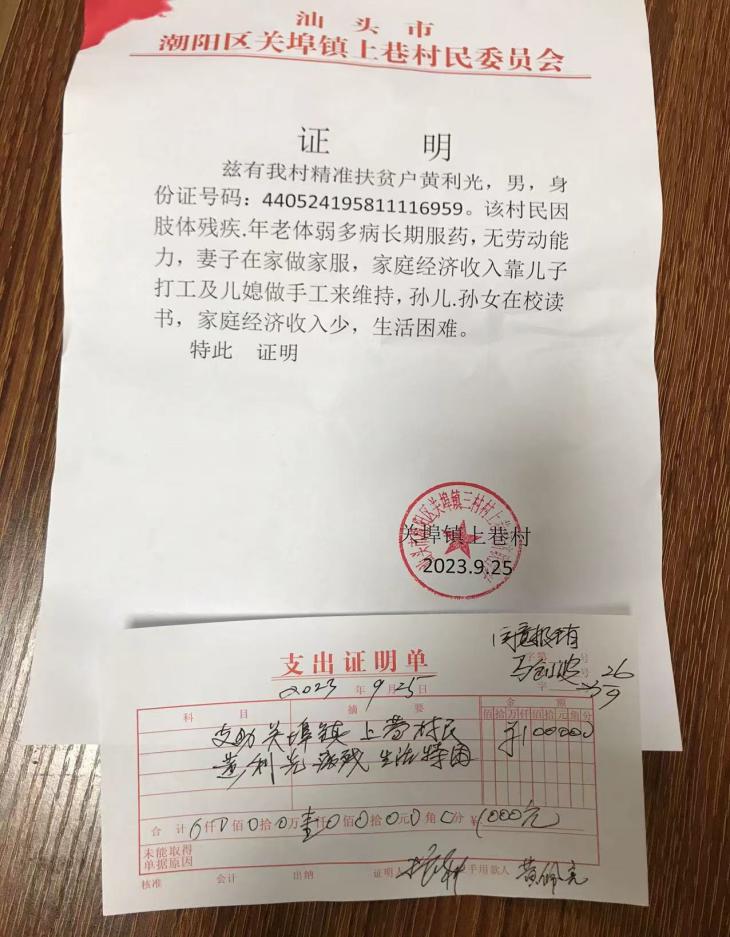 汕头市
潮阳区关埠镇上巷村民委员会
证 明
兹有我村精准扶贫户黄利光，男，身
份证号码：440524195811116959。该村民因
肢体残疾.年老体弱多病长期服药，无劳动能
力，妻子在家做家服，家庭经济收入靠儿子
打工及儿媳做手工来维持，孙儿.孙女在校读
书，家庭经济收入少，生活困难。
特此 证明
关埠镇上巷村
2023.9.25
同意报销
26/9
支出证明单
2023年9月25日
科目 摘要 金额
佰拾万仟佰拾元角分
支助关埠镇上巷村民 ¥100000
黄利光病残生活特困
合计 0仟0佰0拾0万壹仟0佰0拾0元0角0分 ¥1000元
未能取得
单据原因
核准 会计 出纳 证明人 经手用款人